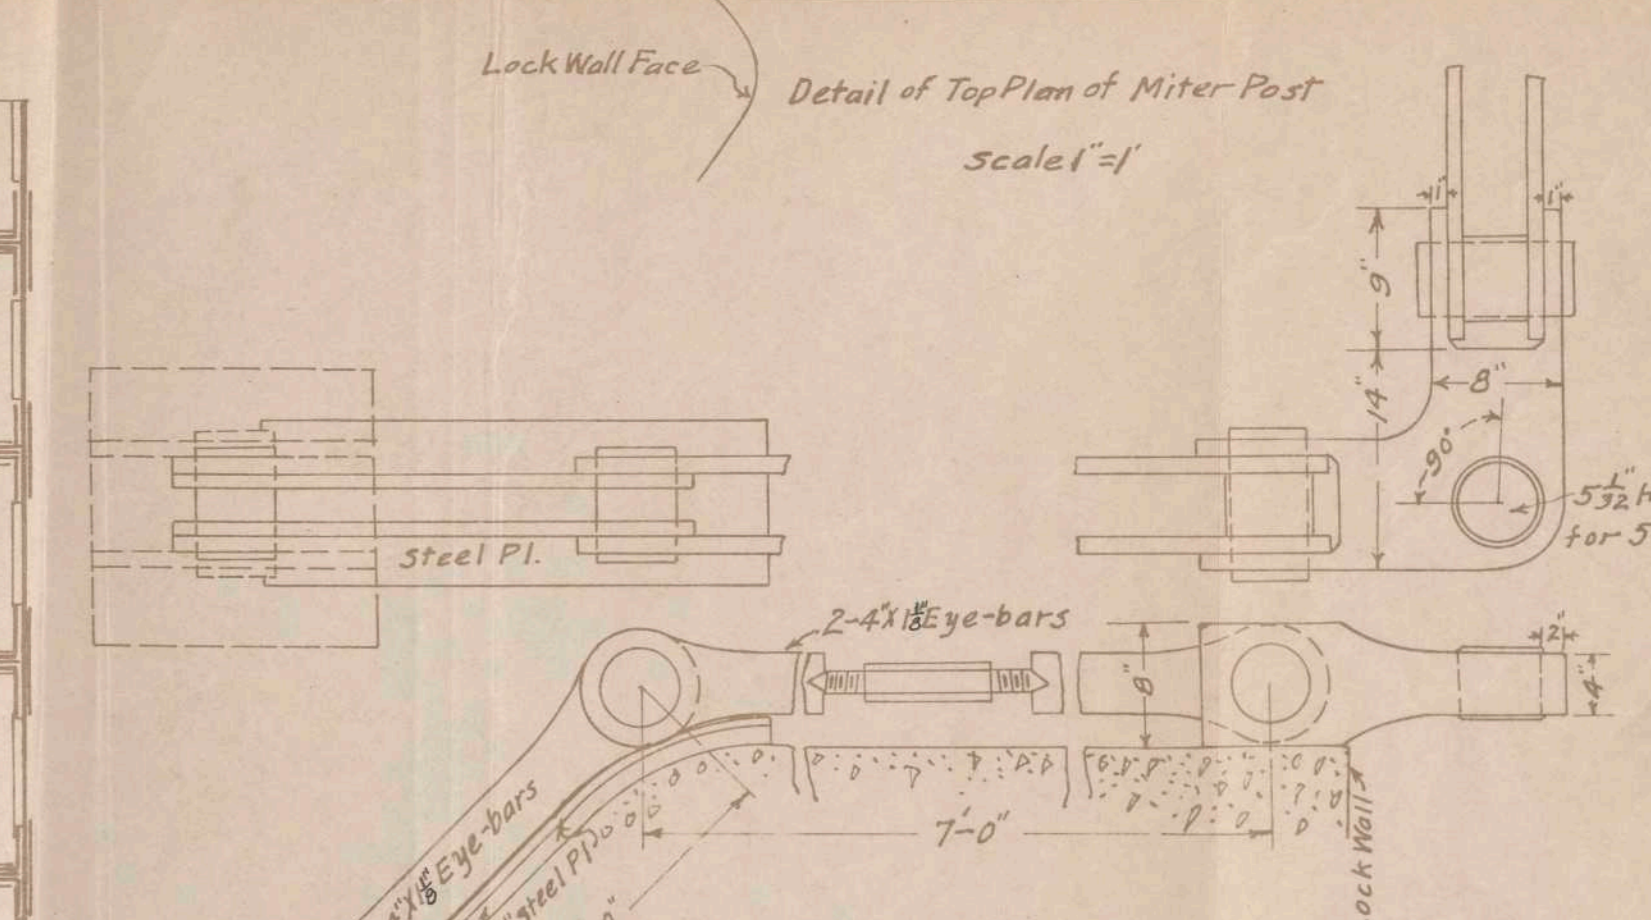 Lock Wall Face
Detail of Top Plan of Miter Post
scale 1"=1'
1"
1"
9"
14"
8"
90°
5 1/32"
for 5
steel Pl.
2-4"X1 1/8" Eye-bars
8"
2"
4"
7'-0"
"X1 1/8" Eye-bars
steel Pl.
Wall